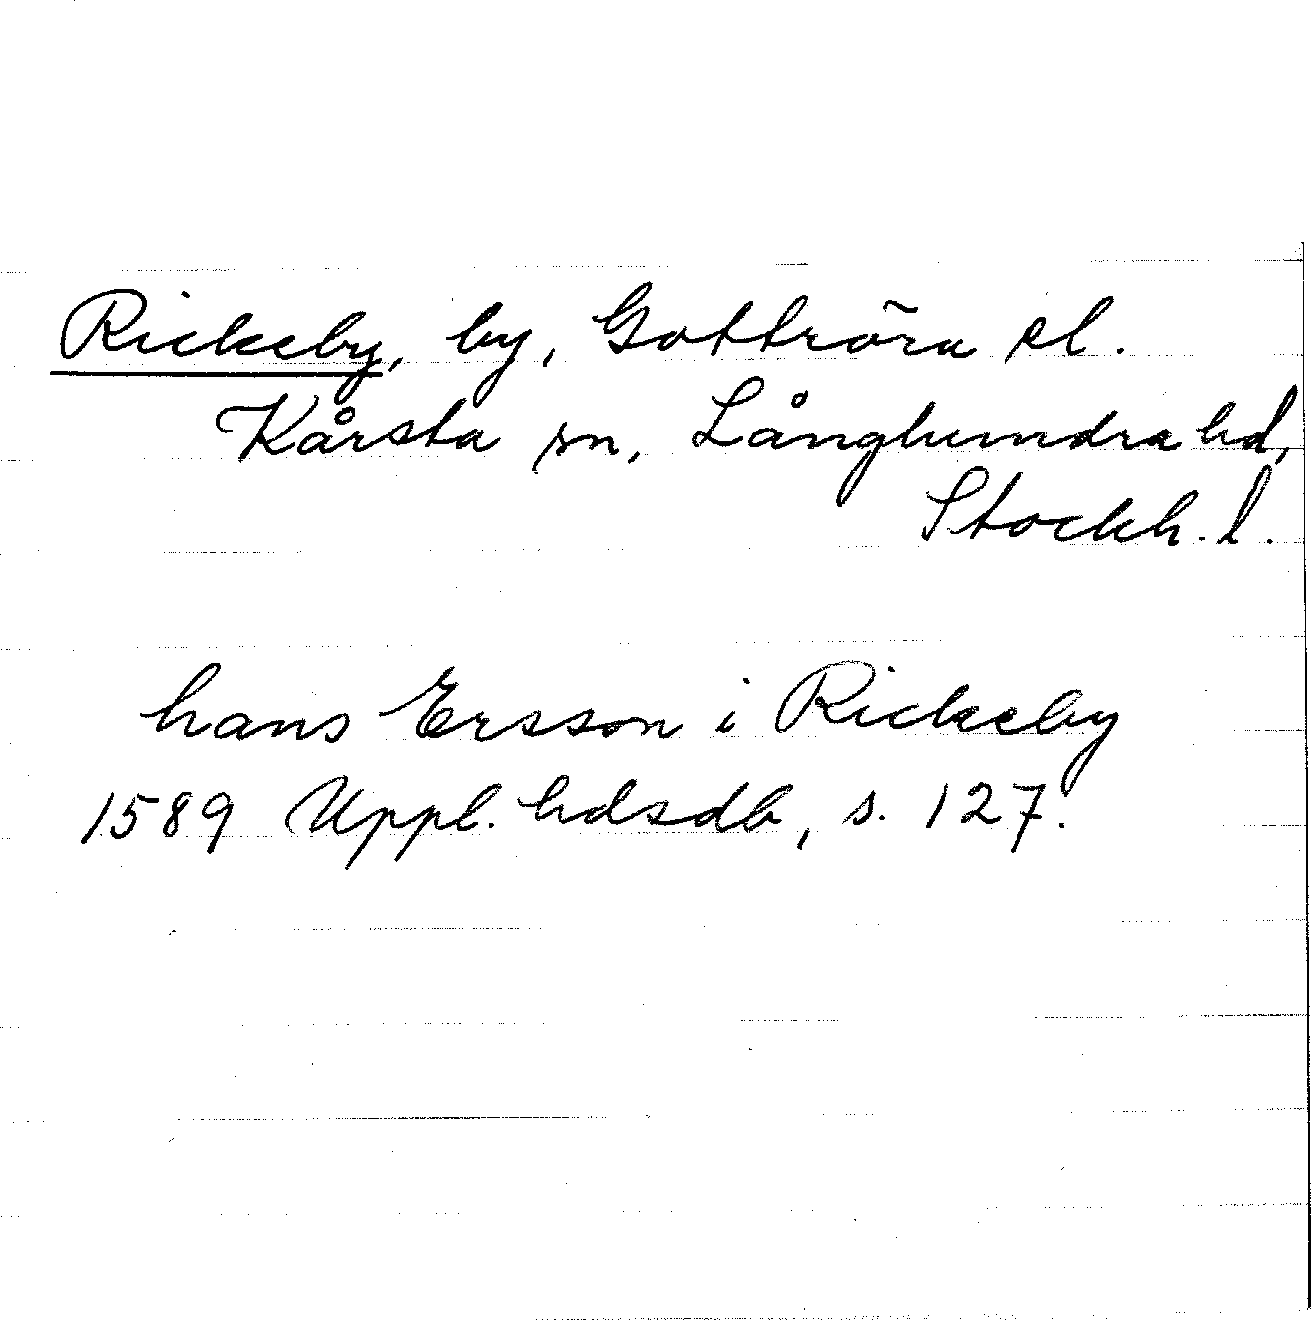 Rickeby, by, Gottröra sl.
Kårsta sn, Långhundra hd,
Stockh. l.
hans Ersson i Rickeby
1589 Uppl. hdsdb, s. 127.